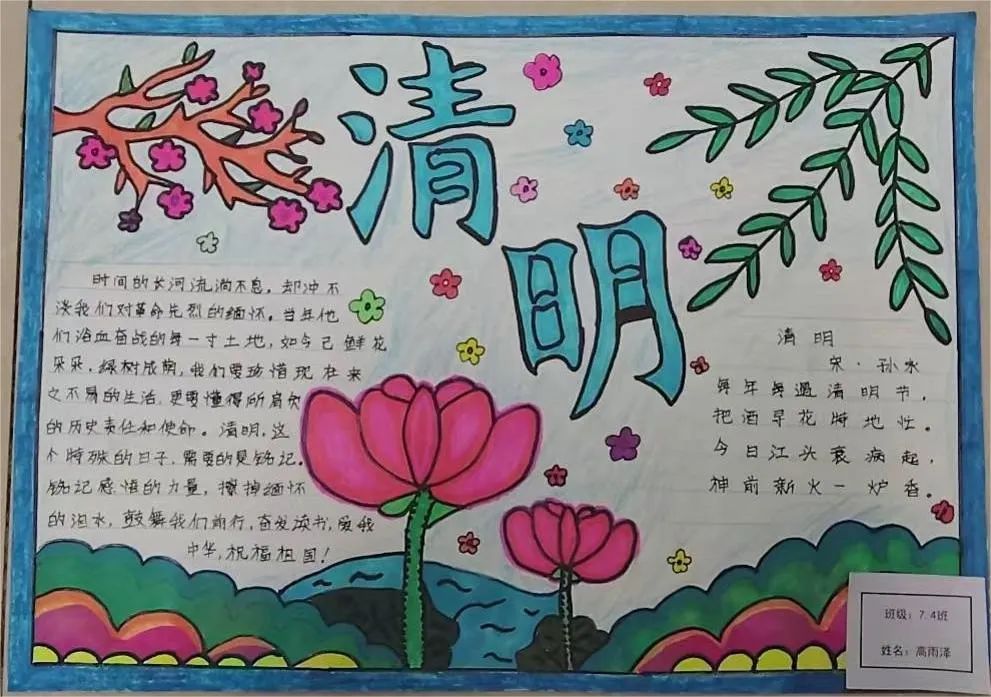 清
明
时间的长河流淌不息，却冲不
淡我们对革命先烈的缅怀。当年他
们浴血奋战的每一寸土地，如今已鲜花
朵朵，绿树成荫，我们要珍惜现在来
之不易的生活，更要懂得所肩负
的历史责任和使命。清明，这
个特殊的日子，需要的是铭记。
铭记感悟的力量，擦掉缅怀
的泪水，鼓舞我们前行，奋发读书，爱我
中华，祝福祖国！
清明
宋·孙水
每年每過清明节，
把酒早花特地忙。
今日江头衰病起，
神前新火一炉香。
班级：7.4班
姓名：高雨泽